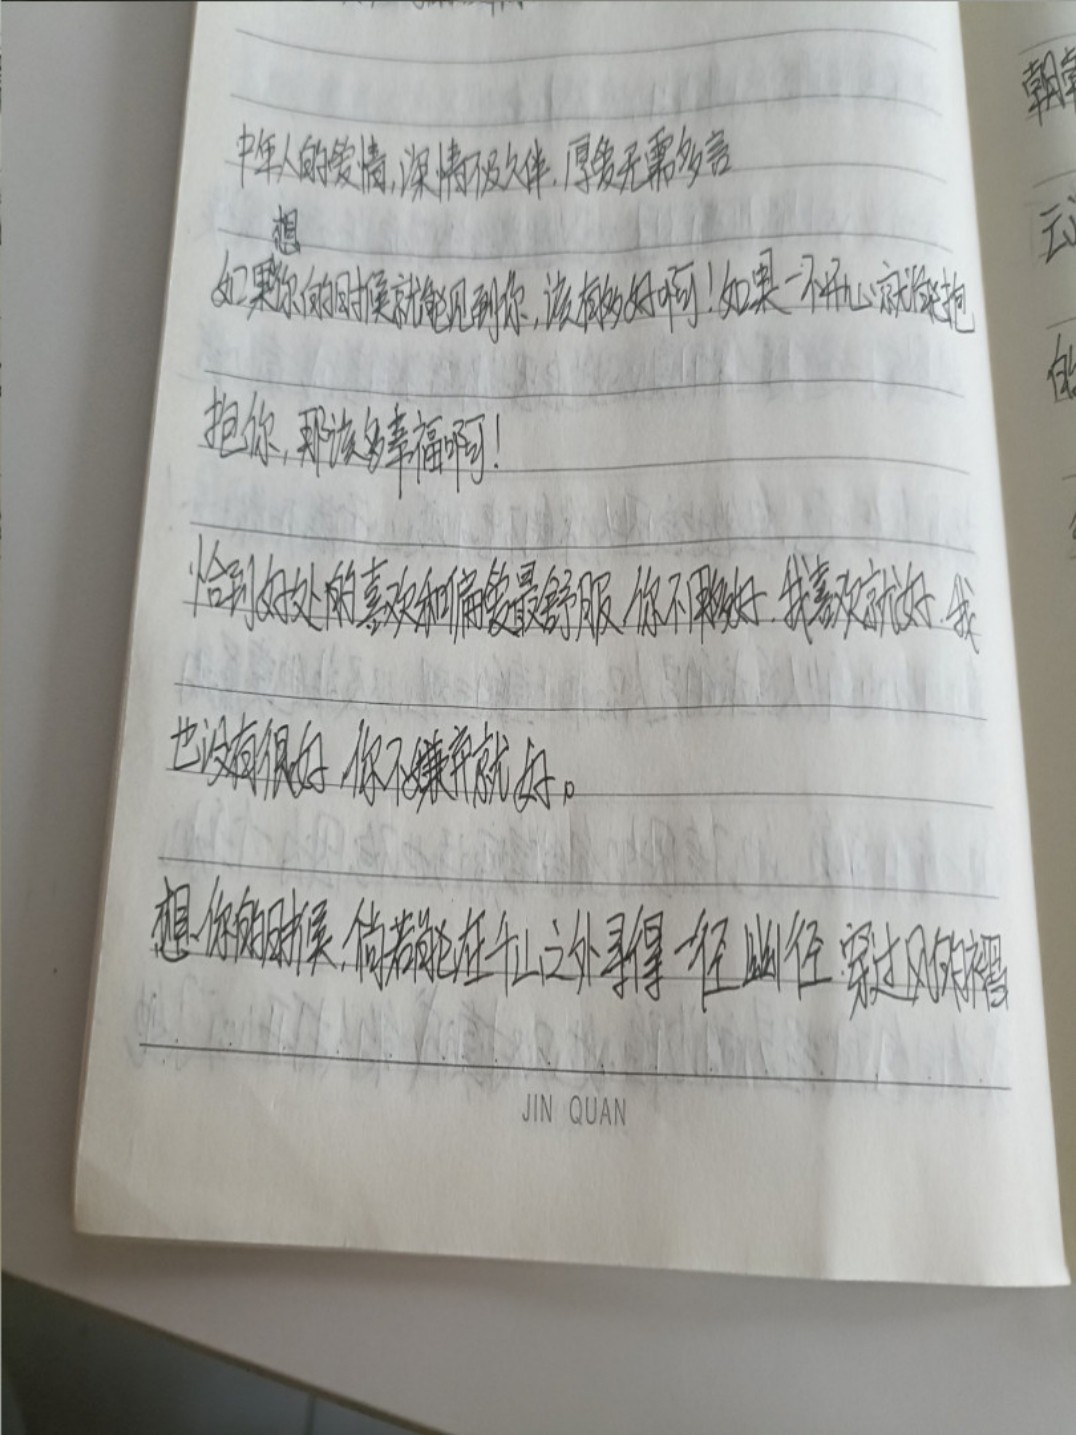 中年人的爱情,深情不及久伴,厚爱无需多言
想
如果你的时候就能见到你,该有多好啊!如果一不开心就能抱
抱你,那该多幸福啊!
恰到好处的喜欢和偏爱最舒服 你不用多好,我喜欢就好,我
也没有很好 你不嫌弃就好。
想你的时候,倘若能在千山之外寻得一径幽径 穿过风的褶
JIN QUAN
朝
云
的